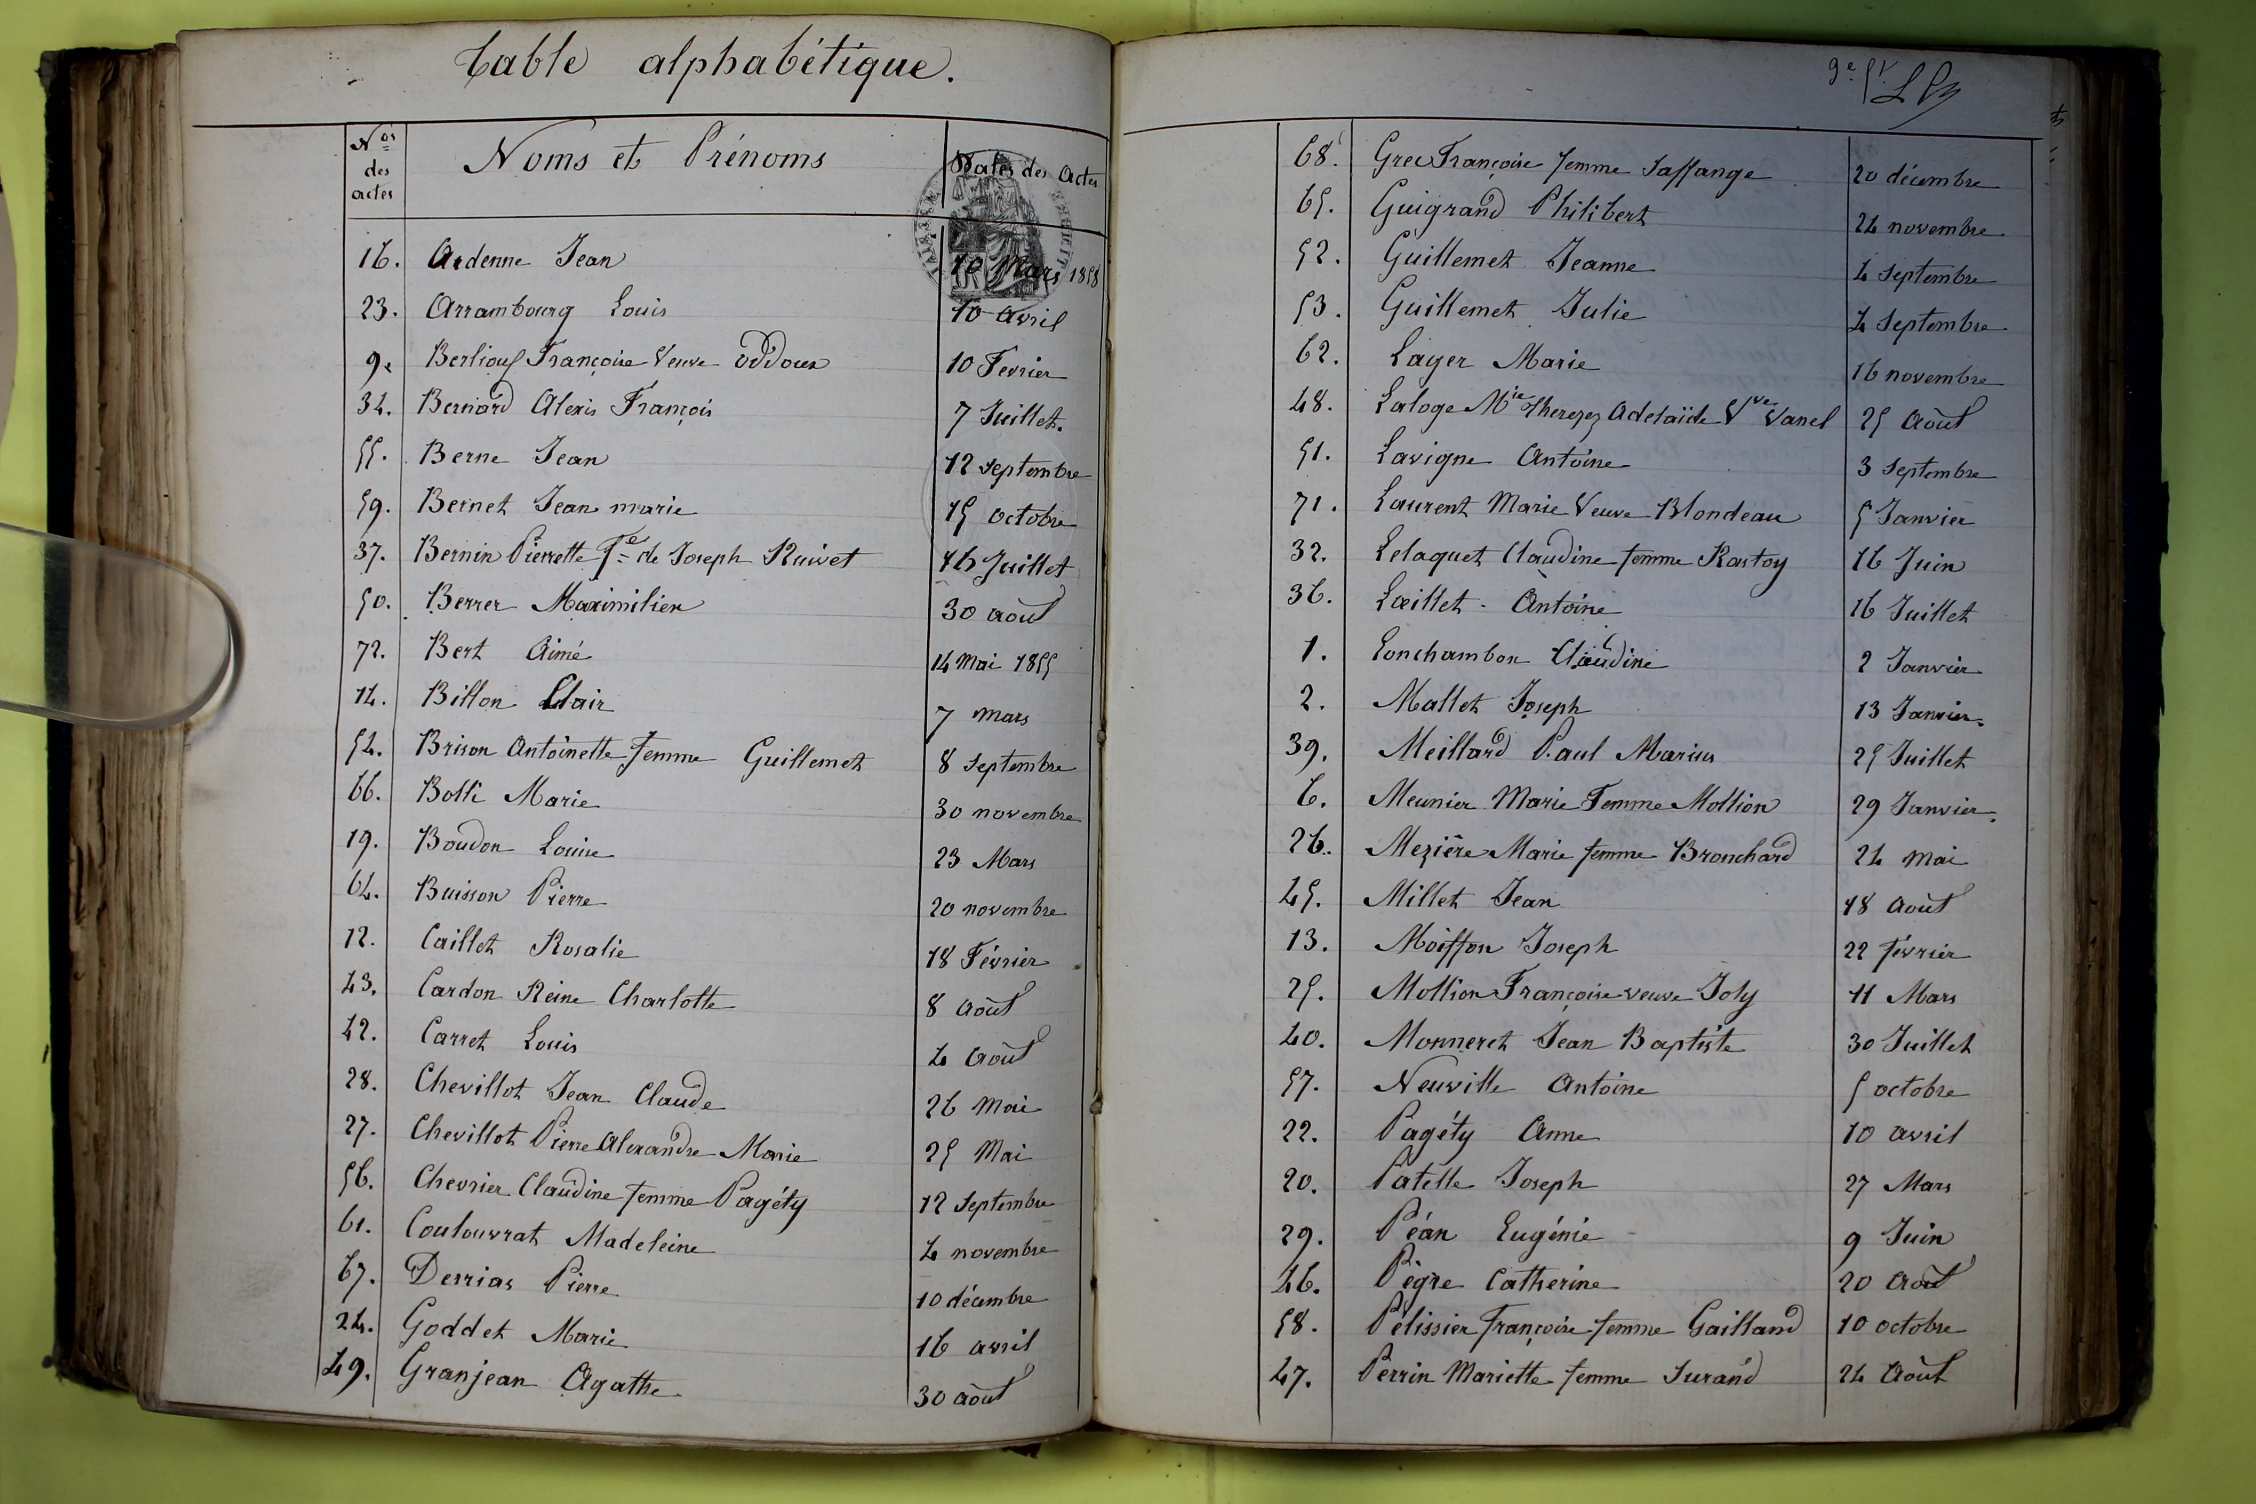 Table alphabétique.
Nos des actes Noms et Prénoms Dates des Actes
16. Ardenne Jean 10 Mars 1858
23. Arrambourg Louis 10 avril
9. Berlioux Françoise Veuve Oddoux 10 Fevrier
34. Bernard Alexis François 7 Juillet.
55. Berne Jean 12 septembre
59. Bernet Jean marie 15 octobre
37. Bernin Pierrette fe de Joseph Ruivet 16 Juillet
50. Berrer Maximilien 30 août
72. Bert Aimé 14 Mai 1855
14. Billon Clair 7 mars
54. Brison Antoinette femme Guillemet 8 septembre
66. Bolli Marie 30 novembre
19. Boudon Louise 23 Mars
64. Buisson Pierre 20 novembre
12. Caillet Rosalie 18 Février
43. Cardon Reine Charlotte 8 Août
42. Carret Louis 4 Août
28. Chevillot Jean Claude 26 Mai
27. Chevillot Pierre Alexandre Marie 25 Mai
56. Chevrier Claudine femme Pagéty 12 septembre
61. Coulouvrat Madeleine 4 novembre
67. Derrias Pierre 10 décembre
24. Goddet Marie 16 avril
49. Granjean Agathe 30 août
9e
68. Grec Françoise femme Saffange 20 décembre
65. Guigrand Philibert 24 novembre
52. Guillemet Jeanne 4 septembre
53. Guillemet Julie 4 septembre
62. Lager Marie 16 novembre
48. Laloge Mie Therese Adelaïde Vve Vanel 25 Août
51. Lavigne Antoine 3 septembre
71. Laurent Marie Veuve Blondeau 5 Janvier
32. Lelaquet Claudine femme Rastoy 16 Juin
36. Lœillet Antoine 16 Juillet
1. Lonchambon Claudine 2 Janvier
2. Mallet Joseph 13 Janvier.
39. Meillard Paul Marius 25 Juillet
6. Meunier Marie Femme Mollion 29 Janvier.
26. Mezière Marie femme Bronchard 24 mai
45. Millet Jean 18 Août
13. Moiffon Joseph 22 février
25. Mollion Françoise veuve Joly 11 Mars
40. Monneret Jean Baptiste 30 Juillet
57. Neuville Antoine 5 octobre
22. Pagéty Anne 10 avril
20. Patelle Joseph 27 Mars
29. Péan Eugénie 9 Juin
46. Pègre Catherine 20 Août
58. Pélissier Françoise femme Gailland 10 octobre
47. Perrin Mariette femme Jurand 24 Août